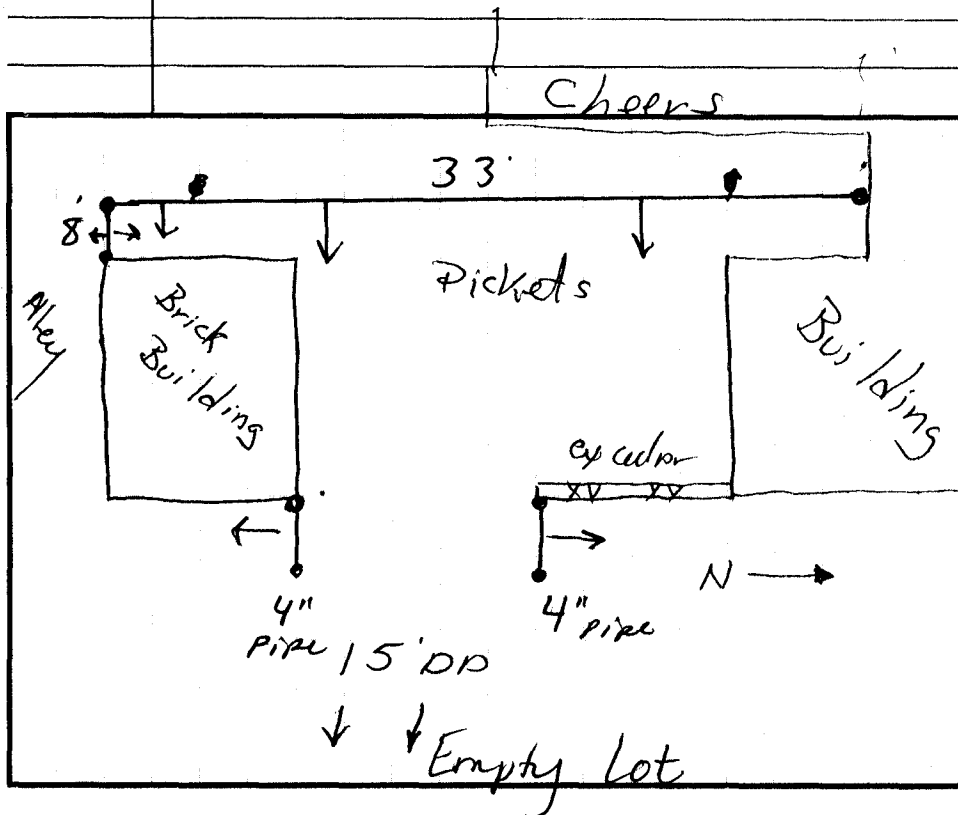 Cheers
33'
8'
Pickets
Alley
Brick
Building
Building
N
4"
pipe
4" pipe
15' DD
Empty Lot